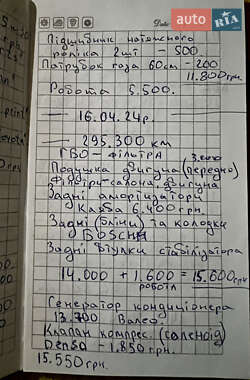 auto RIA
Date
Підшипник натяжного
роліка 2шт - 500
Патрубок газа 60см - 200
11.800грн.
Робота 5.500.
16.04.24р.
295.300 км
3.600
ГБО - фільтра
Подушка двигуна (передню)
Фільтри-салона, двигуна
Задні амортизатори
Каяба 6.400грн.
Задні (бліни) та колодки
BOSCH
Задні втулки стабілізатора
14.000 + 1.600 = 15.600грн
робота
Генератор кондиціонера
13.700 Валео.
Клапан компрес. (саленоід)
Denso - 1.850грн.
15.550грн.